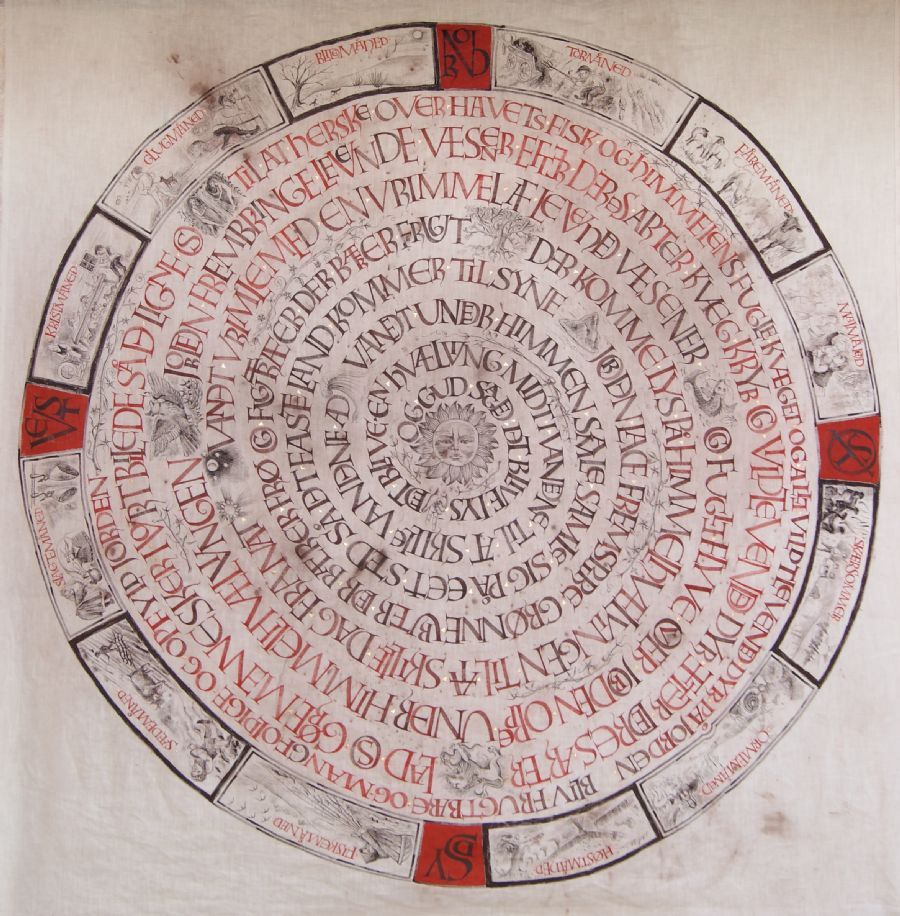 NORD
TORMÅNED
FÅREMÅNED
MAJMÅNED
ØST
SKÆRSOMMER
ORMEMÅNED
HØSTMÅNED
SYD
FISKEMÅNED
SÆDEMÅNED
SLAGTEMÅNED
VEST
KRISTMÅNED
GLUGMÅNED
BLIDEMÅNED
OG GUD SAGDE DER BLIVE LYS
DER BLIVE EN HVÆLVING MIDT I VANDENE TIL AT SKILLE VANDENE AD
VANDET UNDER HIMMELEN SAMLE SIG PÅ EET STED SÅ DET FASTE LAND KOMMER TIL SYNE
JORDEN LADE FREMSPIRE GRØNNE URTER DER BÆRER FRØ OG FRUGTTRÆER DER BÆRER FRUGT
DER KOMME LYS PÅ HIMMELHVÆLVINGEN TIL AT SKILLE DAG FRA NAT
VANDET VRIMLE MED EN VRIMMEL AF LEVENDE VÆSENER
OG FUGLE FLYVE OVER JORDEN OPPE UNDER HIMMELHVÆLVINGEN
JORDEN FREMBRINGE LEVENDE VÆSENER EFTER DERES ARTER KVÆG KRYB OG VILDTLEVENDE DYR EFTER DERES ARTER
LAD OS GØRE MENNESKER I VORT BILLEDE SÅ DE LIGNE OS
TIL AT HERSKE OVER HAVETS FISK OG HIMMELENS FUGLE KVÆGET OG ALLE VILDTLEVENDE DYR PÅ JORDEN
BLIV FRUGTBARE OG MANGFOLDIGE OG OPFYLD JORDEN